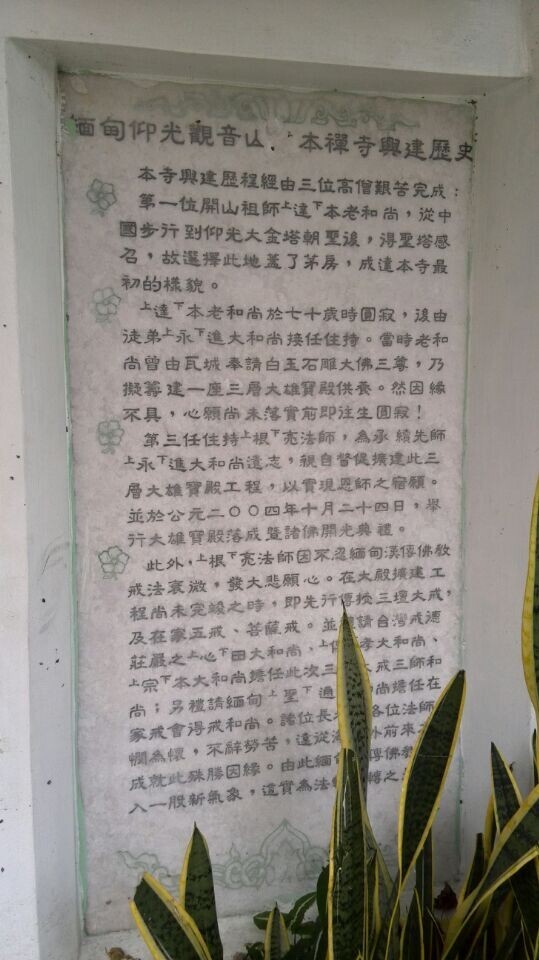 緬甸仰光觀音山 本禪寺興建歷史
本寺興建歷程經由三位高僧艱苦完成：
第一位開山祖師上達下本老和尚，從中
國步行到仰光大金塔朝聖後，得聖塔感
召，故選擇此地蓋了茅房，成達本寺最
初的樣貌。
上達下本老和尚於七十歲時圓寂，後由
徒弟上永下進大和尚接任住持。當時老和
尚曾由瓦城奉請白玉石雕大佛三尊，乃
擬籌建一座三層大雄寶殿供養。然因緣
不具，心願尚未落實前即往生圓寂！
第三任住持上根下亮法師，為承續先師
上永下進大和尚遺志，親自督促擴建此三
層大雄寶殿工程，以實現恩師之宿願。
並於公元二〇〇四年十月二十四日，舉
行大雄寶殿落成暨諸佛開光典禮。
此外，上根下亮法師因不忍緬甸漢傳佛教
戒法衰微，發大悲願心。在大殿擴建工
程尚未完竣之時，即先行傳授三壇大戒，
及在家五戒、菩薩戒。並 請台灣戒德
莊嚴之上心下田大和尚、上 孝大和尚、
上宗下本大和尚擔任此次三 大戒三師和
尚；另禮請緬甸上聖下通 和尚擔任在
家戒會得戒和尚。諸位長 各位法師
憫為懷，不辭勞苦，遠從 外前來
成就此殊勝因緣。由此緬 傳佛教
入一股新氣象，這實為法 轉之